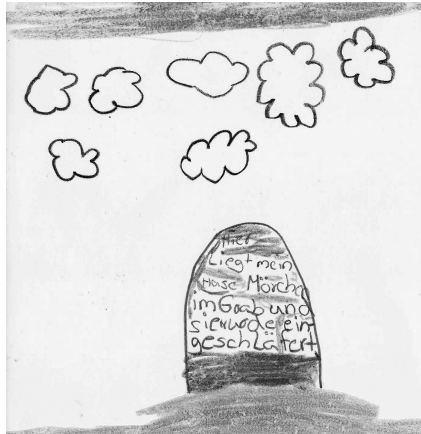 Hier
Liegt mein
Hase Mörchen
im Grab und
sie wurde ein
geschläfert